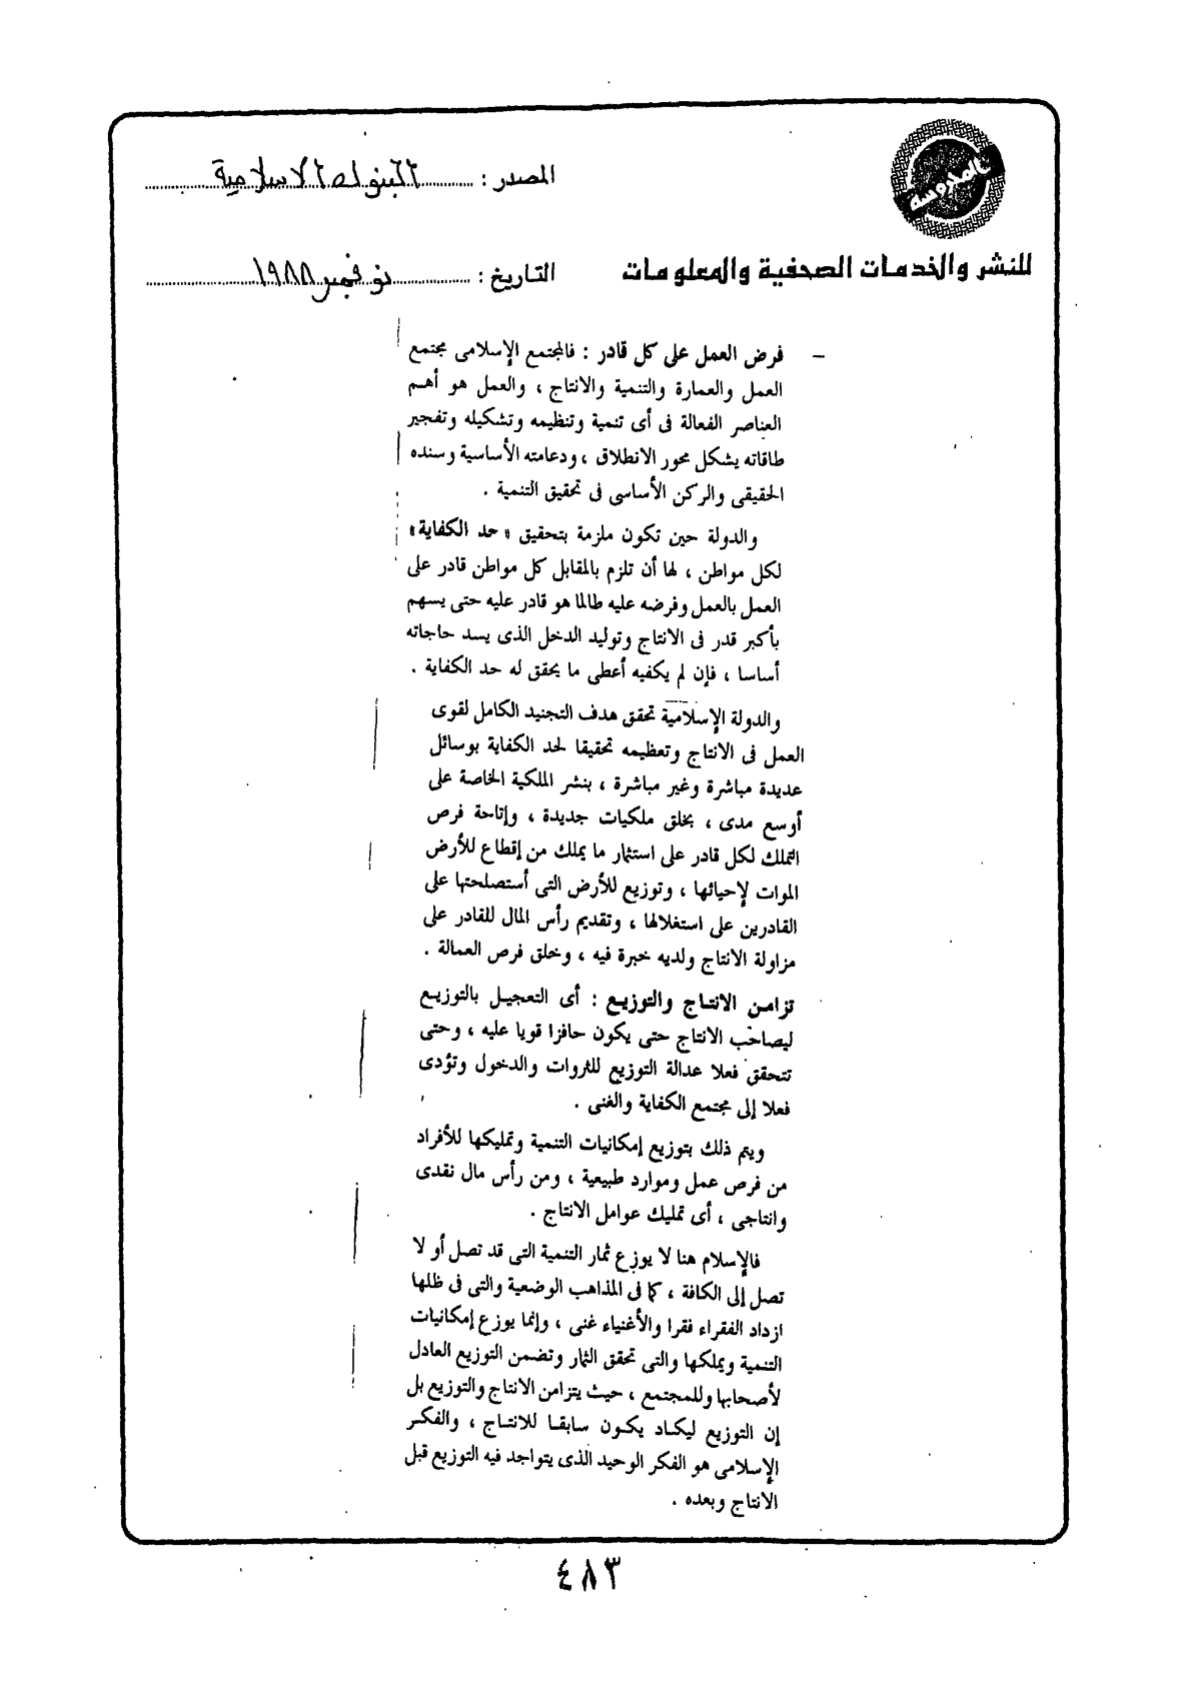 المصدر : البنوك الاسلامية
للنشر والخدمات الصحفية والمعلومات
التاريخ : نوفمبر ١٩٨٨
– فرض العمل على كل قادر : فالمجتمع الإسلامى مجتمع
العمل والعمارة والتنمية والانتاج ، والعمل هو أهم
العناصر الفعالة فى أى تنمية وتنظيمه وتشكيله وتفجير
طاقاته يشكل محور الانطلاق ، ودعامته الأساسية وسنده
الحقيقى والركن الأساسى فى تحقيق التنمية .
والدولة حين تكون ملزمة بتحقيق « حد الكفاية »
لكل مواطن ، لها أن تلزم بالمقابل كل مواطن قادر على
العمل بالعمل وفرضه عليه طالما هو قادر عليه حتى يسهم
بأكبر قدر فى الانتاج وتوليد الدخل الذى يسد حاجاته
أساسا ، فإن لم يكفيه أعطى ما يحقق له حد الكفاية .
والدولة الإسلامية تحقق هدف التجنيد الكامل لقوى
العمل فى الانتاج وتعظيمه تحقيقا لحد الكفاية بوسائل
عديدة مباشرة وغير مباشرة ، بنشر الملكية الخاصة على
أوسع مدى ، بخلق ملكيات جديدة ، وإتاحة فرص
التملك لكل قادر على استثمار ما يملك من إقطاع للأرض
الموات لإحيائها ، وتوزيع للأرض التى أستصلحتها على
القادرين على استغلالها ، وتقديم رأس المال للقادر على
مزاولة الانتاج ولديه خبرة فيه ، وخلق فرص العمالة .
تزامن الانتاج والتوزيع : أى التعجيل بالتوزيع
ليصاحب الانتاج حتى يكون حافزا قويا عليه ، وحتى
تتحقق فعلا عدالة التوزيع للثروات والدخول وتؤدى
فعلا إلى مجتمع الكفاية والغنى .
ويتم ذلك بتوزيع إمكانيات التنمية وتمليكها للأفراد
من فرص عمل وموارد طبيعية ، ومن رأس مال نقدى
وانتاجى ، أى تمليك عوامل الانتاج .
فالإسلام هنا لا يوزع ثمار التنمية التى قد تصل أو لا
تصل إلى الكافة ، كما فى المذاهب الوضعية والتى فى ظلها
ازداد الفقراء فقرا والأغنياء غنى ، وإنما يوزع إمكانيات
التنمية ويملكها والتى تحقق الثمار وتضمن التوزيع العادل
لأصحابها وللمجتمع ، حيث يتزامن الانتاج والتوزيع بل
إن التوزيع ليكاد يكون سابقا للانتاج ، والفكر
الإسلامى هو الفكر الوحيد الذى يتواجد فيه التوزيع قبل
الانتاج وبعده .
٤٨٣